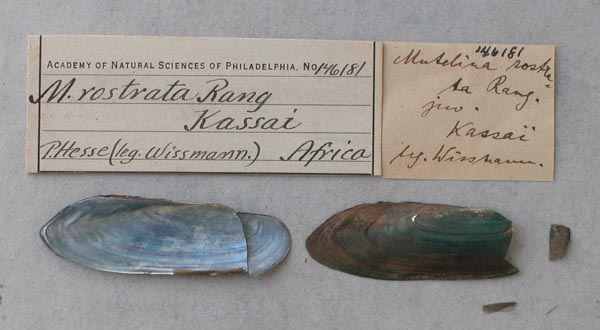 ACADEMY OF NATURAL SCIENCES OF PHILADELPHIA, No. 146181
M. rostrata Rang
Kassai
P. Hesse (leg. Wissmann.) Africa
146181
Mutelina rostra-
ta Rang.
juv.
Kassaï
leg. Wissmann.